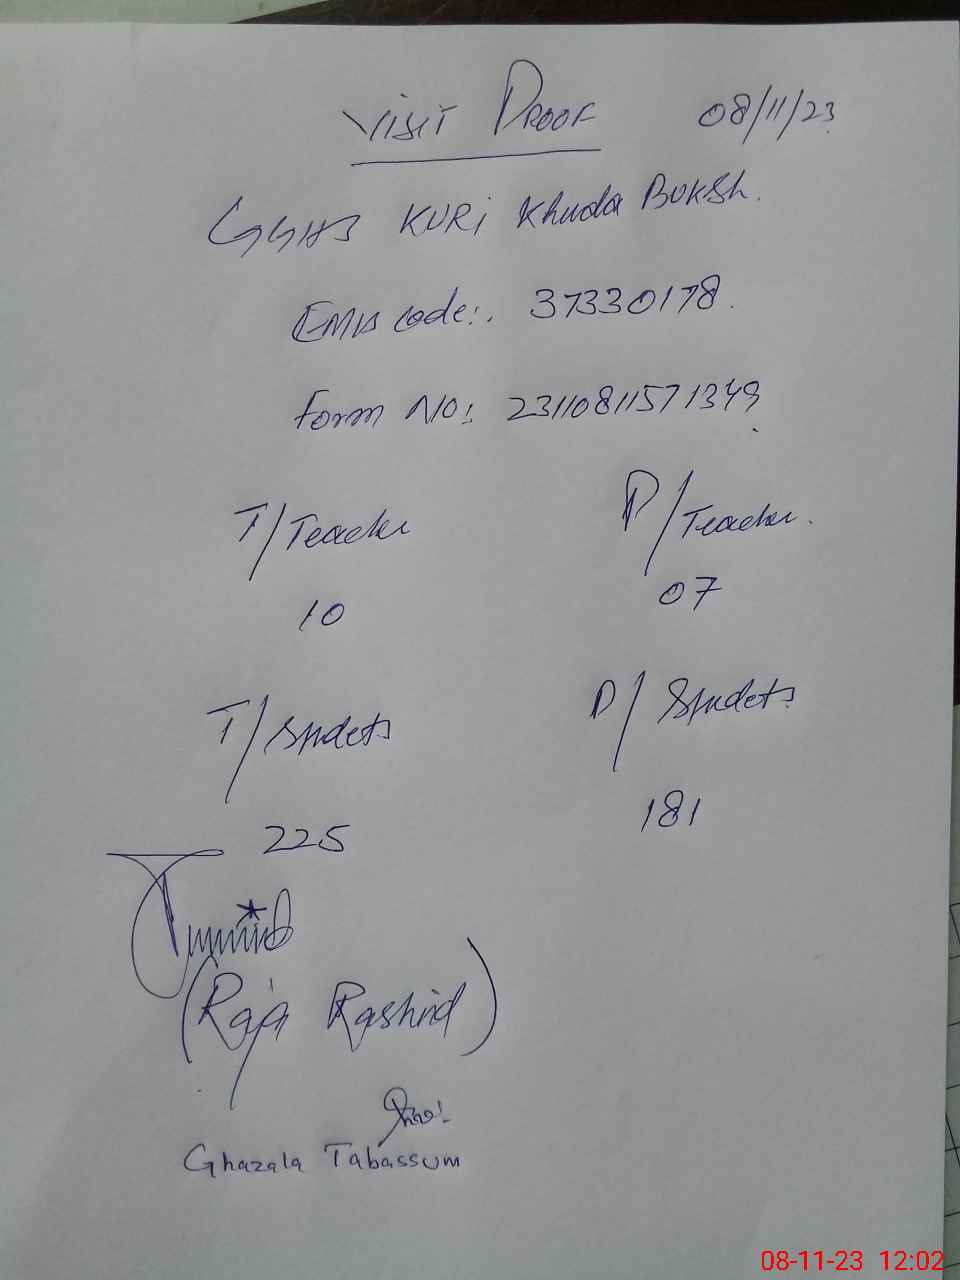 Visit Proof 08/11/23
GGHS KURi Khuda Buksh.
EMIS code:. 37330178.
Form No: 2311081157 1349
T/Teacher P/Teacher.
10 07
T/Studets P/Studets
225 181
(Raja Rashid)
Ghazala Tabassum
08-11-23 12:02